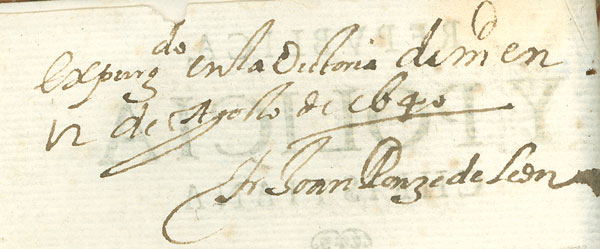 Expurgdo en la Vitoria de md en
12 de Agosto de 1640
fr Joan Ponze de Leon